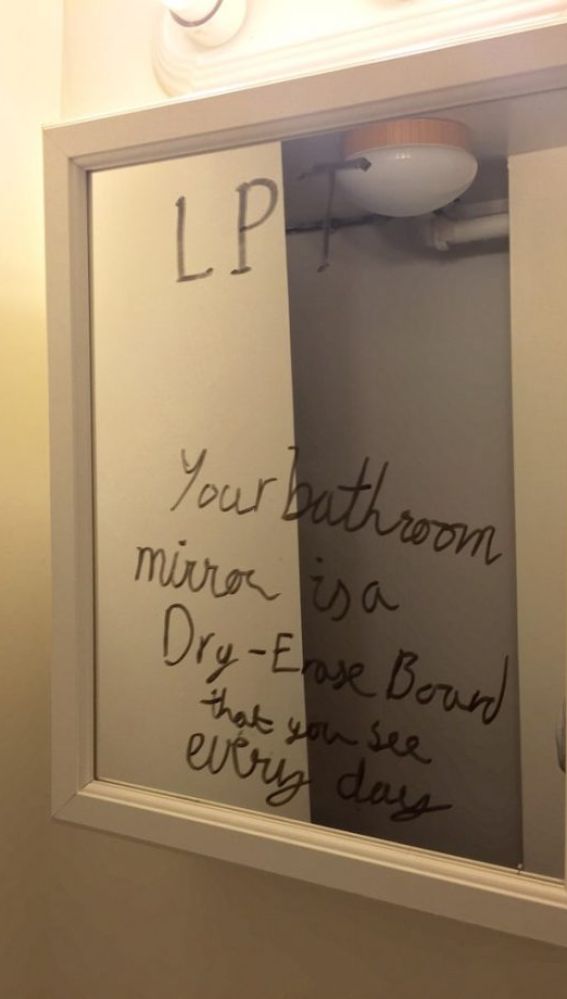 LPT
Your bathroom
mirror is a
Dry-Erase Board
that you see
every day